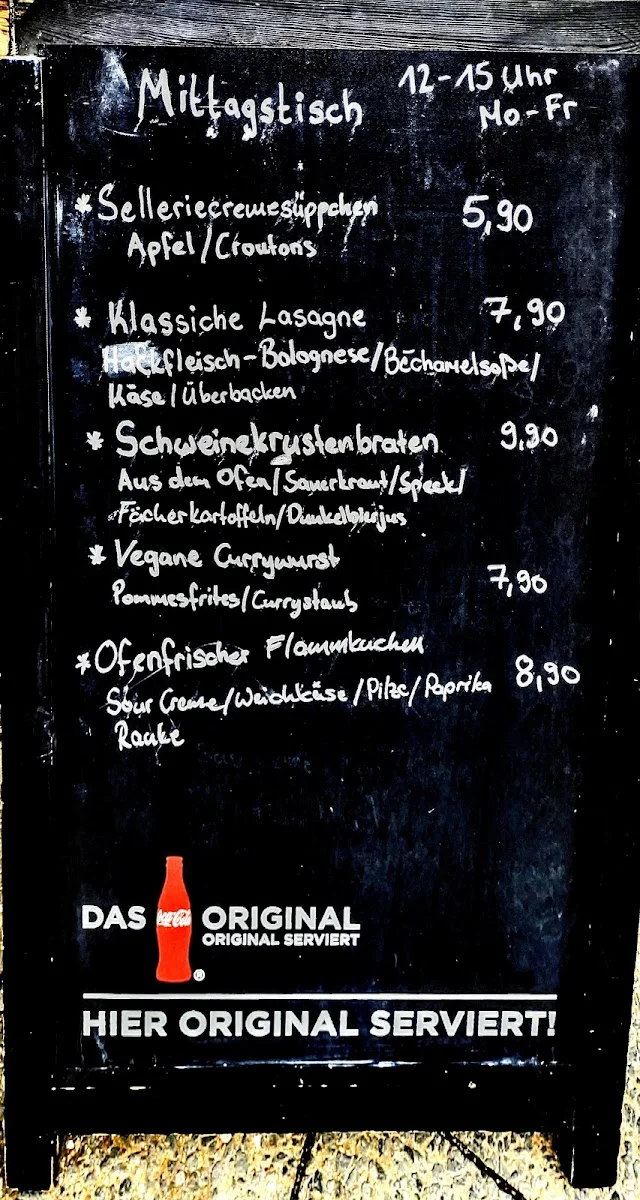 Mittagstisch 12-15 Uhr
Mo-Fr
* Selleriecremesüppchen 5,90
Apfel/Croutons
* Klassiche Lasagne 7,90
Hackfleisch-Bolognese/Béchamelsoße/
Käse/Überbacken
* Schweinekrustenbraten 9,90
Aus dem Ofen/Sauerkraut/Speck/
Fächerkartoffeln/Dunkelbierjus
* Vegane Currywurst
Pommesfrites/Currystaub 7,90
* Ofenfrischer Flammkuchen
Sour Creme/Weichkäse/Pilze/Paprika 8,90
Rauke
DAS Coca-Cola ORIGINAL
ORIGINAL SERVIERT
®
HIER ORIGINAL SERVIERT!